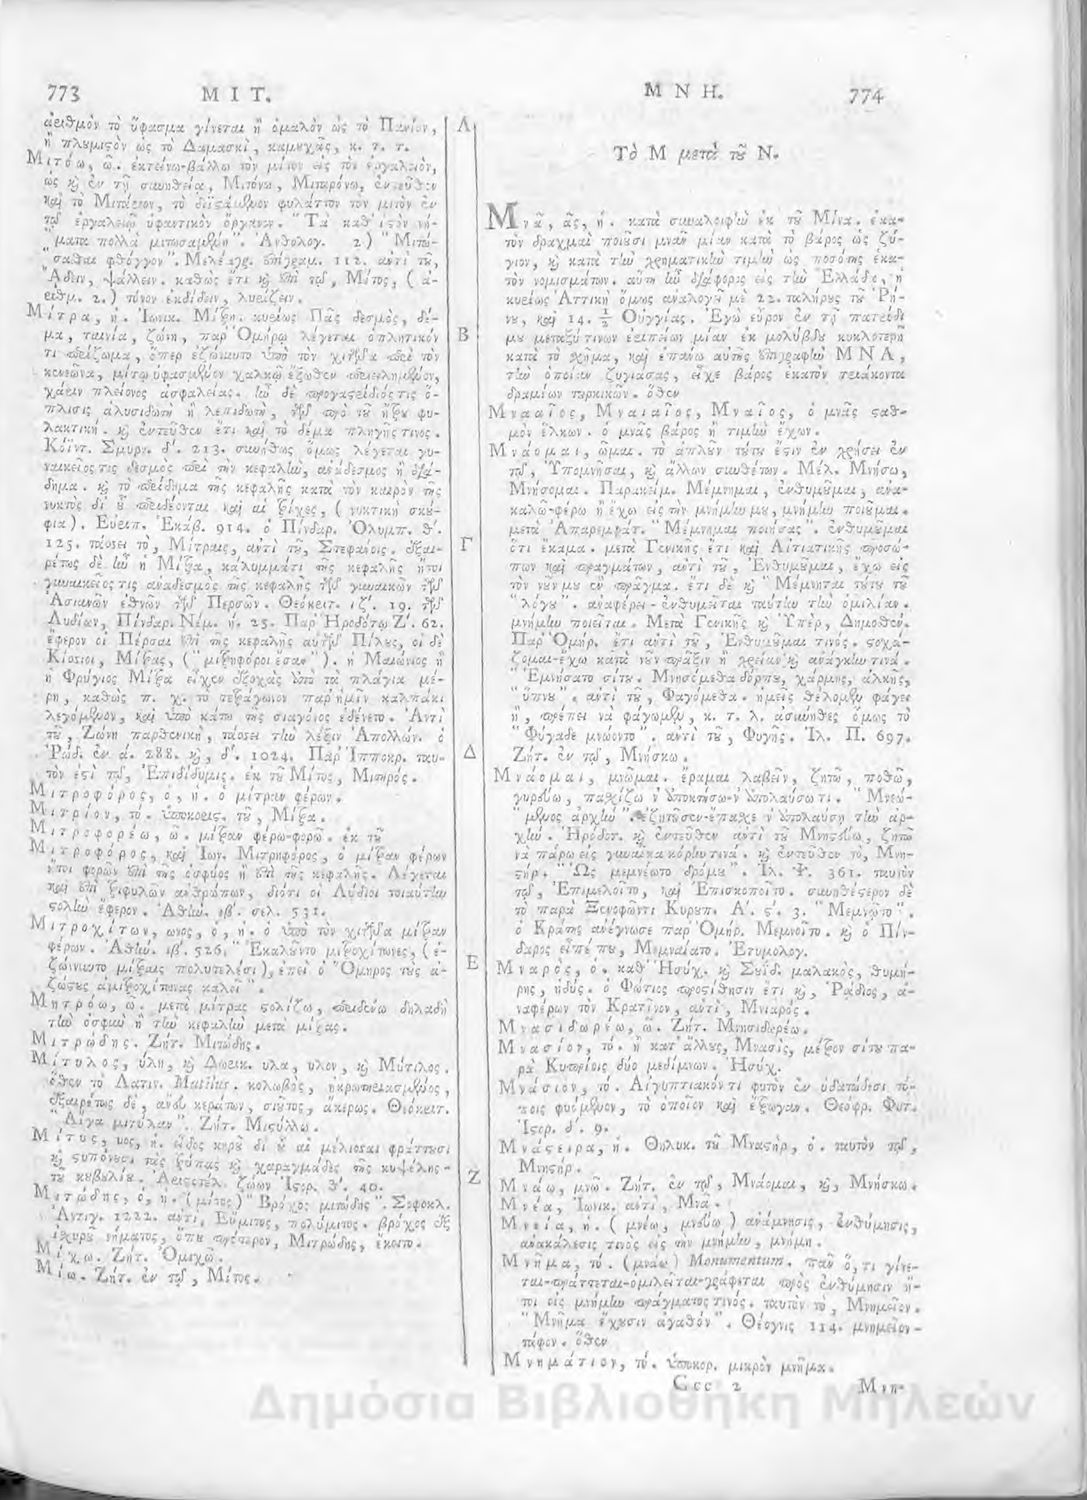 773 ΜΙΤ.
ἀειθμὸν τὸ ὕφασμα γίνεται ἢ ὁμαλὸν ὡς τὸ Πανίον,
ἢ πλουμιστὸν ὡς τὸ Δαμασκὶ, καμουχᾶς, κ. τ. τ.
Μιτόω, ῶ. ἐκτείνω-βάλλω τὸν μίτον εἰς τὸν ἐργαλειὸν,
ὡς καὶ ἐν τῇ συνηθείᾳ, Μιτόνω, Μιταρόνω, ἐντεῦθεν
καὶ τὸ φυλάττον τὸν μιτὸν ἐν
τῷ ἐργαλειῷ ὑφαντικὸν ὄργανον. "Τὰ καθ' ἱστὸν νή-
"ματα πολλὰ μιτωσαμένη". Ἀνθολογ. 2) "Μιτώ-
"σασθαι φθόγγον". Μελέαγρ. ἐπίγραμ. 112. ἀντὶ τοῦ,
Ἄδειν, ψάλλειν. καθὼς ἔτι καὶ ἐπὶ τοῦ, Μίτος, (ἀ-
ειθμ. 2.) τόνον ἐκδίδειν, λυρίζειν.
Μίτρα, ἡ. Ἰωνικ. Μίτρη. κυρίως Πᾶς δεσμὸς, δέ-
μα, ταινία, ζώνη, παρ' Ὁμήρῳ λέγεται ὁπλητικόν
τι περίζωμα, ὅπερ ἐζώννυτο ὑπὸ τὸν χιτῶνα περὶ τὸν
κενεῶνα, μίτῳ ὑφασμένον χαλκῷ ἔξωθεν περιειλημμένον,
χάριν πλείονος ἀσφαλείας. ἦν δὲ προγαστρίδιός τις ὅ-
πλισις ἁλυσιδωτὴ ἢ λεπιδωτὴ, τῶν πρὸ τοῦ ἤτρου φυ-
λακτική. καὶ ἐντεῦθεν ἔτι καὶ τὸ δέμα πληγῆς τινος.
Κόϊντ. Σμυρν. δ'. 213. συνήθως ὅμως λέγεται γυ-
ναικεῖός τις δεσμὸς περὶ τὴν κεφαλὴν, ἀνάδεσμος ἢ διά-
δημα. καὶ τὸ περίδημα τῆς κεφαλῆς κατὰ τὸν καιρὸν τῆς
νυκτὸς δι' οὗ περιδέονται καὶ αἱ τρίχες, (νυκτικὴ σκού-
φια). Εὐριπ. Ἑκάβ. 914. ὁ Πίνδαρ. Ὀλυμπ. θ'.
125. τάσσει τὸ, Μίτραις, ἀντὶ τοῦ, Στεφάνοις. ἐξαι-
ρέτως δὲ ἦν ἡ Μίτρα, καλυμμάτι τῆς κεφαλῆς ἤτοι
γυναικεῖός τις ἀναδεσμὸς τῆς κεφαλῆς τῶν γυναικῶν τῶν
Ἀσιανῶν ἐθνῶν τῶν Περσῶν. Θεόκριτ. ιζ'. 19. τῶν
Λυδίων, Πίνδαρ. Νεμ. η'. 25. Παρ' Ἡροδότῳ Ζ'. 62.
ἔφερον οἱ Πέρσαι ἐπὶ τῆς κεφαλῆς αὐτῶν Πίλους, οἱ δὲ
Κίσσιοι, Μίτρας, ("μιτρηφόροι ἔσαν"). ἡ Μαιώνιος ἢ
ἡ Φρύγιος Μίτρα εἶχεν ἐξοχὰς ὑπὸ τὰ πλάγια μέ-
ρη, καθὼς π. χ. τὸ τετράγωνον παρ' ἡμῖν καλπάκι
λεγόμενον, καὶ ὑπὸ κάτω τῆς σιαγόνος ἐδένετο. Ἀντὶ
τοῦ, Ζώνη παρθενικὴ, τάσσει τὴν λέξιν Ἀπολλών. ὁ
Ῥόδ. ἐν α'. 288. καὶ, δ'. 1024. Παρ' Ἱπποκρ. ταυ-
τόν ἐστι τῷ, Ἐπιδίδυμις. ἐκ τοῦ Μίτος, Μιτρός.
Μιτροφόρος, ὁ, ἡ. ὁ μίτραν φέρων.
Μιτρίον, τό. ὑποκορις. τοῦ, Μίτρα.
Μιτροφορέω, ῶ. μίτραν φέρω-φορῶ. ἐκ τοῦ
Μιτροφόρος, καὶ Ἰων. Μιτρηφόρος, ὁ μίτραν φέρων
ἤτοι φορῶν ἐπὶ τῆς ὀσφύος ἢ ἐπὶ τῆς κεφαλῆς. Λέγεται
καὶ ἐπὶ τρυφηλῶν ἀνθρώπων, διότι οἱ Λύδιοι τοιαύτην
στολὴν ἔφερον. Ἀθήν. ιβ'. σελ. 531.
Μιτροχίτων, ωνος, ὁ, ἡ. ὁ ὑπὸ τὸν χιτῶνα μίτραν
φέρων. Ἀθήν. ιβ'. 526. "Ἐκαλοῦντο μιτροχίτωνες, (ἐ-
ζώννυντο μίτραις πολυτελέσι), ἐπεὶ ὁ Ὅμηρος τοὺς ἀ-
ζώστους ἀμιτροχίτωνας καλεῖ".
Μητρόω, ῶ. μετὰ μίτρας στολίζω, περιδένω δηλαδὴ
τὴν ὀσφὺν ἢ τὴν κεφαλὴν μετὰ μίτρας.
Μιτρώδης. Ζήτ. Μιτώδης.
Μίτυλος, ύλη, καὶ Δωρικ. υλα, υλον, καὶ Μύτιλος.
ὅθεν τὸ Λατιν. Mutilus. κολωβὸς, ἠκρωτηριασμένος,
ἐξαιρέτως δὲ, ἄνευ κεράτων, σιοῦτος, ἄκερως. Θεόκριτ.
"Αἶγα μιτύλαν". Ζήτ. Μιστύλλω.
Μίτυς, υος, ἡ. εἶδος κηροῦ δι' οὗ αἱ μέλισσαι φράττουσι
καὶ στυπόνουσι τὰς τρύπας καὶ χαραγμάδες τῆς κυψέλης-
τοῦ κουβελίου. Ἀριστοτέλ. ζώων Ἱστορ. 3'. 40.
Μιτώδης, ὁ, ἡ. (μίτος) "Βρόχος μιτώδης". Σοφοκλ.
Ἀντιγ. 1222. ἀντὶ, Εὔμιτος, πολύμιτος. βρόχος ἐξ
ἰσχυροῦ νήματος, ὅπου πρότερον, Μιτρώδης, ἔκειτο.
Μίχω. Ζήτ. Ὀμιχῶ.
Μίω. Ζήτ. ἐν τῷ, Μίτος.
Α
Β
Γ
Δ
Ε
Ζ
ΜΝΗ. 774
Τὸ Μ μετὰ τοῦ Ν.
Μνᾶ, ᾶς, ἡ. κατὰ συναλοιφὴν ἐκ τοῦ Μίνα. ἑκα-
τὸν δραχμαὶ ποιοῦσι μνᾶν μίαν κατὰ τὸ βάρος ὡς ζύ-
γιον, καὶ κατὰ τὴν χρηματικὴν τιμὴν ὡς ποσότης ἑκα-
τὸν νομισμάτων. αὕτη ἦν διάφορος εἰς τὴν Ἑλλάδα, ἡ
κυρίως Ἀττικὴ ὅμως ἀναλογεῖ μὲ 22. ταλήρους τοῦ Ῥή-
νου, καὶ 14. 1/2 Οὐγγίας. Ἐγὼ εὗρον ἐν τῇ πατρίδι
μου μεταξύ τινων ἐρειπίων μίαν ἐκ μολύβδου κυκλοτερῆ
κατὰ τὸ σχῆμα, καὶ ἐπάνω αὐτῆς ἐπιγραφὴν ΜΝΑ,
τὴν ὁποίαν ζυγιάσας, εἶχε βάρος ἑκατὸν τριάκοντα
δραμίων τουρκικῶν. ὅθεν
Μνααῖος, Μναιαῖος, Μναῖος, ὁ μνᾶς σταθ-
μὸν ἕλκων. ὁ μνᾶς βάρος ἢ τιμὴν ἔχων.
Μνάομαι, ῶμαι. τὸ ἁπλοῦν τούτου ἔστιν ἐν χρήσει ἐν
τῷ, Ὑπομνῆσαι, καὶ ἄλλων συνθέτων. Μέλ. Μνήσω,
Μνήσομαι. Παρακείμ. Μέμνημαι, ἐνθυμοῦμαι, ἀνα-
καλῶ-φέρω ἢ ἔχω εἰς τὴν μνήμην μου, μνήμην ποιοῦμαι.
μετὰ Ἀπαρεμφάτ. "Μέμνημαι ποιήσας". ἐνθυμοῦμαι
ὅτι ἔκαμα. μετὰ Γενικῆς ἔτι καὶ Αἰτιατικῆς προσώ-
πων καὶ πραγμάτων, ἀντὶ τοῦ, Ἐνθυμοῦμαι, ἔχω εἰς
τὸν νοῦν μου ἓν πρᾶγμα. ἔτι δὲ καὶ "Μέμνηται τούτου τοῦ
"λόγου". ἀναφέρει-ἐνθυμᾶται ταύτην τὴν ὁμιλίαν.
μνήμην ποιεῖται. Μετὰ Γενικῆς καὶ Ὑπέρ, Δημοσθέν.
Παρ' Ὁμήρ. ἔτι ἀντὶ τοῦ, Ἐνθυμοῦμαι τινὸς. στοχά-
ζομαι-ἔχω κατὰ νοῦν πρᾶξιν ἢ χρείαν καὶ ἀνάγκην τινά.
"Ἐμνήσατο σίτου. Μνησόμεθα δόρπου, χάρμης, ἀλκῆς,
"ὕπνου". ἀντὶ τοῦ, Φαγόμεθα. ἡμεῖς θέλομεν φάγει
ἢ, πρέπει νὰ φάγωμεν, κ. τ. λ. ἀσυνήθες ὅμως τὸ
"Φύγαδε μνώοντο". ἀντὶ τοῦ, Φυγῆς. Ἰλ. Π. 697.
Ζήτ. ἐν τῷ, Μνήσκω.
Μνάομαι, μνῶμαι. ἔραμαι λαβεῖν, ζητῶ, ποθῶ,
γυρεύω, πασχίζω ν' ἀποκτήσω-ν' ἀπολαύσω τι. "Μνεώ-
"μενος ἀρχήν". ἐζητοῦσεν-ἔπασχε ν' ἀπολαύσῃ τὴν ἀρ-
χήν. Ἡρόδοτ. καὶ ἐντεῦθεν ἀντὶ τοῦ Μνηστεύω, ζητῶ
νὰ πάρω εἰς γυναῖκα κόρην τινά. καὶ ἐντεῦθεν τὸ, Μνη-
στήρ. "Ὡς μεμνέωτο δρόμου". Ἰλ. Ψ. 361. ταυτὸν
τῷ, Ἐπιμελοῖτο, καὶ Ἐπισκοποῖτο. συνηθέστερον δὲ
τὸ παρὰ Ξενοφῶντι Κυρουπ. Α'. ς'. 3. "Μεμνῷτο".
ὁ Κράτης ἀνέγνωσε παρ' Ὁμήρ. Μεμνοῖτο. καὶ ὁ Πίν-
δαρος εἶπέ που, Μεμναίατο. Ἐτυμολογ.
Μναρὸς, ὁ. καθ' Ἡσύχ. καὶ Σουΐδ. μαλακὸς, θυμή-
ρης, ἡδύς. ὁ Φώτιος προστίθησιν ἔτι καὶ, Ῥᾴδιος, ἀ-
ναφέρων τὸν Κρατῖνον, ἀντὶ, Μνιαρός.
Μνασιδωρέω, ῶ. Ζήτ. Μνησιδωρέω.
Μνασίον, τό. ἢ κατ' ἄλλους, Μνασὶς, μέτρον σίτου πα-
ρὰ Κυπρίοις δύο μεδίμνων. Ἡσύχ.
Μνάσιον, τό. Αἰγυπτιακόν τι φυτὸν ἐν ὑδατώδεσι τό-
ποις φυόμενον, τὸ ὁποῖον καὶ ἔτρωγαν. Θεόφρ. Φυτ.
Ἱστορ. δ'. 9.
Μνάστειρα, ἡ. Θηλυκ. τοῦ Μναστὴρ, ὁ. ταυτὸν τῷ,
Μνηστήρ.
Μνάω, μνῶ. Ζήτ. ἐν τῷ, Μνάομαι, καὶ, Μνήσκω.
Μνέα, Ἰωνικ. ἀντὶ, Μνᾶ.
Μνεία, ἡ. (μνέω, μνεύω) ἀνάμνησις, ἐνθύμησις,
ἀνακάλεσις τινὸς εἰς τὴν μνήμην, μνήμη.
Μνῆμα, τό. (μνάω) Monumentum. πᾶν ὅ,τι γίνε-
ται-πράττεται-ὁμιλεῖται-γράφεται πρὸς ἐνθύμησιν ἤ-
τοι εἰς μνήμην πράγματος τινός. ταυτὸν τὸ, Μνημεῖον.
"Μνῆμα ἔχουσιν ἀγαθόν". Θέογνις 114. μνημεῖον-
τάφον. ὅθεν
Μνημάτιον, τό. ὑποκορ. μικρὸν μνῆμα.
Ccc 2 Μνη-
Δημόσια Βιβλιοθήκη Μηλεών